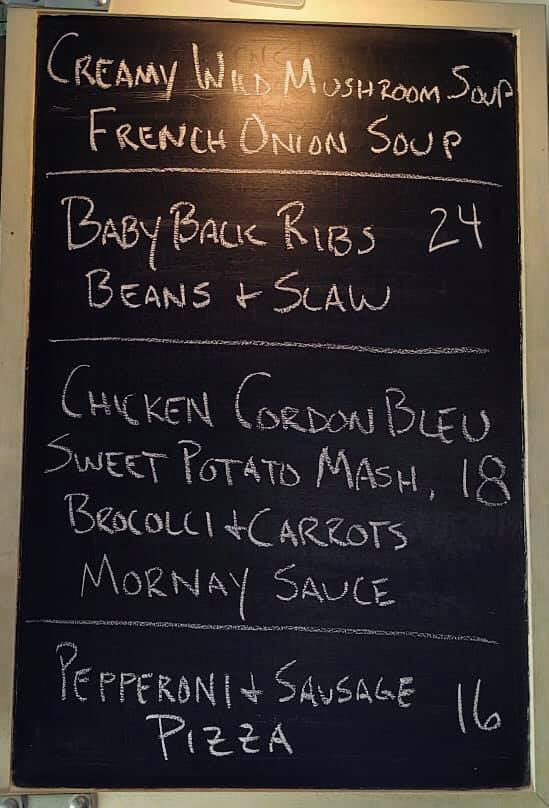 CREAMY WILD MUSHROOM SOUP
FRENCH ONION SOUP
BABY BACK RIBS 24
BEANS + SLAW
CHICKEN CORDON BLEU
SWEET POTATO MASH, 18
BROCOLLI + CARROTS
MORNAY SAUCE
PEPPERONI + SAUSAGE 16
PIZZA